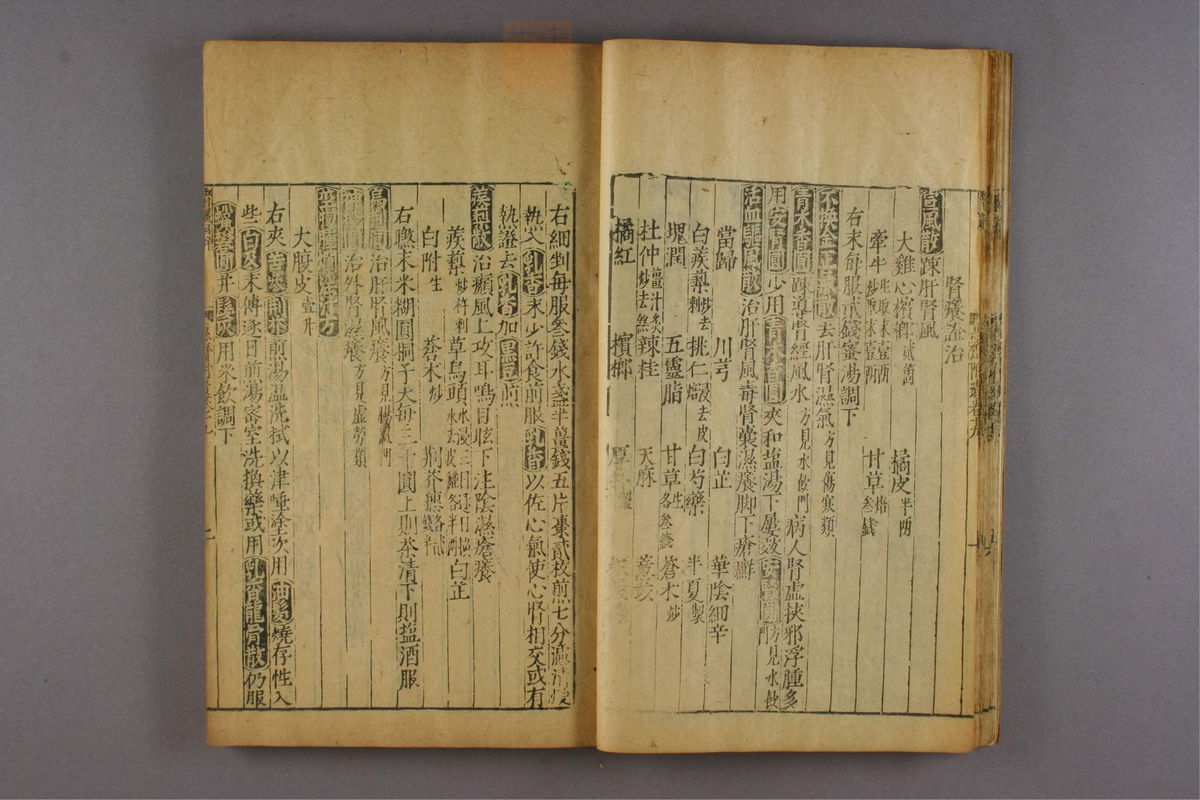 腎癢證治
宣風散疎肝腎風
大雞心檳榔貳箇 橘皮半兩
牽牛生取末壹兩炒取末壹兩 甘草焙叁錢
右末每服貳錢蜜湯調下
不換金正氣散去肝腎濕氣方見傷寒類
青木香圓踈導腎經風水方見水飲門 病人腎虛挾邪浮腫多
用安腎圓少用青木香圓夾和盐湯下屢效安腎圓方見水飲門
活血驅風散治肝腎風毒腎囊濕癢脚下瘡癬
當歸 川芎 白芷 華陰細辛
白蒺䔧炒去刺 桃仁浸去皮焙 白芍藥 半夏製
槐潤 五靈脂 甘草生各叁錢 蒼术炒
杜仲薑汁炙炒去絲 辣桂 天麻 薏苡
橘紅 檳榔 厚朴製
右細剉每服叁錢水盞半薑錢五片棗貳枚煎七分濾清
熱入乳香末少許食前服乳香以佐心氣使心腎相交或有
熱證去乳香加黑豆煎
蒺䔧散治癩風上攻耳鳴目眩下注陰濕瘡癢
蒺䔧炒杵刺 草烏頭水浸三日逐日換水去皮曬各半兩 白芷
白附生 蒼术炒 荆芥穗
右爲末米糊圓桐子大每三十圓上則茶清下則盐酒服
烏荆圓治肝腎風癢方見腸風門
治外腎濕癢方見虛勞類
大腹皮壹升
右夾苦參荆芥煎湯溫洗拭以津唾塗次用油髮燒存性入
些白及末傅逐日煎湯密室洗換藥或用乳香龍骨散仍服
用米飲調下